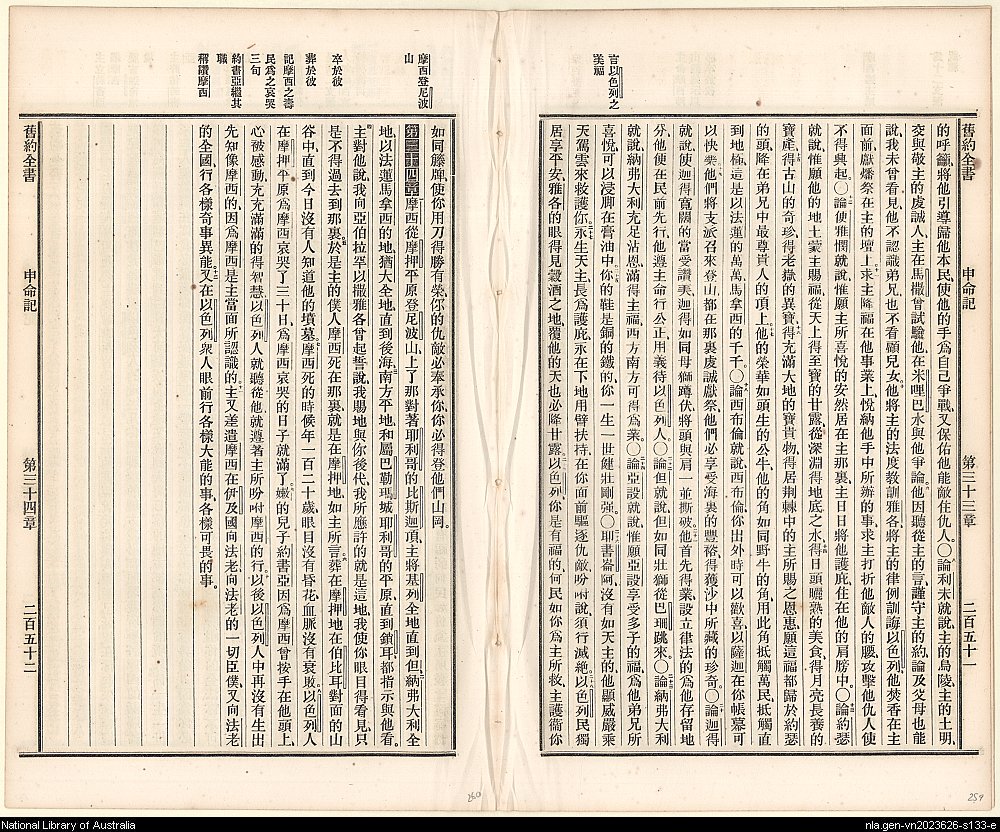 言以色列之
美福
舊約全書 申命記 第三十三章 二百五十一
的呼籲、將他引導歸他本民、使他的手爲自己爭戰、又保佑他能敵住仇人。〇論利未就說、主的烏陵、主的土明、
交與敬主的虔誠人、主在馬撒曾試驗他、在米哩巴水與他爭論。他因聽從主的言、謹守主的約、論及父母也能
說、我未曾看見、他不認識弟兄、也不看顧兒女。他將主的法度教訓雅各、將主的律例訓誨以色列、他焚香在主
面前、獻燔祭在主的壇上。求主降福在他事業上、悅納他手中所辦的事、求主打折他敵人的腰、攻擊他仇人使
不得興起。〇論便雅憫就說、惟願主所喜悅的安然居在主那裏、主日日將他護庇、住在他的肩膀中。〇論約瑟
就說、惟願他的地土蒙主賜福、從天上得至寶的甘露、從深淵得地底之水、得日頭曬熟的美食、得月亮長養的
寶產、得古山的奇珍、得老嶽的異寶、得充滿大地的寶貴物、得居荆棘中的主所賜之恩惠、願這福都歸於約瑟
的頭、降在弟兄中最尊貴人的頂上。他的榮華如頭生的公牛、他的角如同野牛的角、用此角抵觸萬民、抵觸直
到地極、這是以法蓮的萬萬、馬拿西的千千。〇論西布倫就說、西布倫、你出外時可以歡喜、以薩迦在你帳幕可
以快樂。他們將支派召來登山、都在那裏虔誠獻祭、他們必享受海裏的豐裕、得獲沙中所藏的珍奇。〇論迦得
就說、使迦得寬闊的當受讚美、迦得如同母獅蹲伏、將頭與肩一並撕破。他首先得業、設立律法的爲他存留地
分、他便在民前先行、他遵主命行公正、用義待以色列人。〇論但就說、但如同壯獅從巴珊跳來。〇論納弗大利
就說、納弗大利充足沾恩、滿得主福、西方南方可得爲業。〇論亞設就說、惟願亞設享受多子的福、爲他弟兄所
喜悅、可以浸脚在膏油中。你的鞋是銅的鐵的、你一生一世健壯剛強。〇耶書崙阿、沒有如天主的、他顯威嚴乘
天駕雲來救護你。永生天主長爲護庇、永在下地用臂扶持、在你面前驅逐仇敵、吩咐說、須行滅絕。以色列民獨
居享平安、雅各的眼得見穀酒之地、覆他的天也必降甘露。以色列、你是有福的、何民如你、爲主所救、主護衞你
摩西登尼波
山
卒於彼
葬於彼
記摩西之壽
民爲之哀哭
三旬
約書亞繼其
職
稱讚摩西
如同籐牌、使你用刀得勝有榮、你的仇敵必奉承你、你必得登他們山岡。
第三十四章 摩西從摩押平原登尼波山、上了那對著耶利哥的比斯迦頂、主將基列全地直到但、納弗大利全
地、以法蓮馬拿西的地、猶大全地、直到後海、南方平地、和屬巴勒瑪城耶利哥的平原、直到鎖耳、都指示與他看。
主對他說、我向亞伯拉罕以撒雅各曾起誓說、我賜地與你後代、我所應許的就是這地、我使你眼目得看見、只
是不得過去到那裏。於是主的僕人摩西死在那裏、就是在摩押地、如主所言。葬在摩押地、在伯比耳對面的山
谷中、直到今日沒有人知道他的墳墓。摩西死的時候年一百二十歲、眼目沒有昏花、血脈沒有衰敗。以色列人
在摩押平原爲摩西哀哭了三十日、爲摩西哀哭的日子就滿了。嫩的兒子約書亞、因爲摩西曾按手在他頭上、
心被感動、充充滿滿的得智慧、以色列人就聽從他、就遵著主所吩咐摩西的行。以後以色列人中再沒有生出
先知像摩西的、因爲摩西是主當面所認識的。主又差遣摩西在伊及國向法老向法老的一切臣僕、又向法老
的全國、行各樣奇事異能。又在以色列衆人眼前行各樣大能的事、各樣可畏的事。
舊約全書 申命記 第三十四章 二百五十二
250
251
National Library of Australia
nla.gen-vn2023626-s133-e